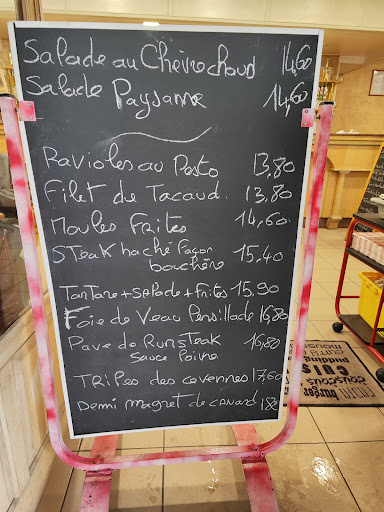 Salade au Chèvre chaud 14,60
Salade Paysanne 14,60
Ravioles au Pesto 13,80
Filet de Tacaud. 13,80
Moules Frites 14,60.
Steak haché Façon
bouchère 15,40
Tartare + salade + Frites 15,90
Foie de Veau Persillade 16,80
Pavé de Rumsteak 16,80
sauce Poivre
Tripes des cevennes 17,60
Demi magret de canard
burger
CUIS
couscous
pudding
mous